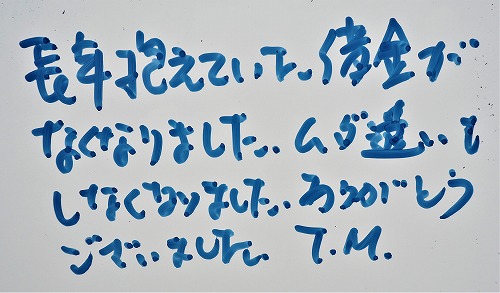 長年抱えていた、借金が
なくなりました。ムダ遣いも
しなくなりました。ありがとう
ございました。T.M.